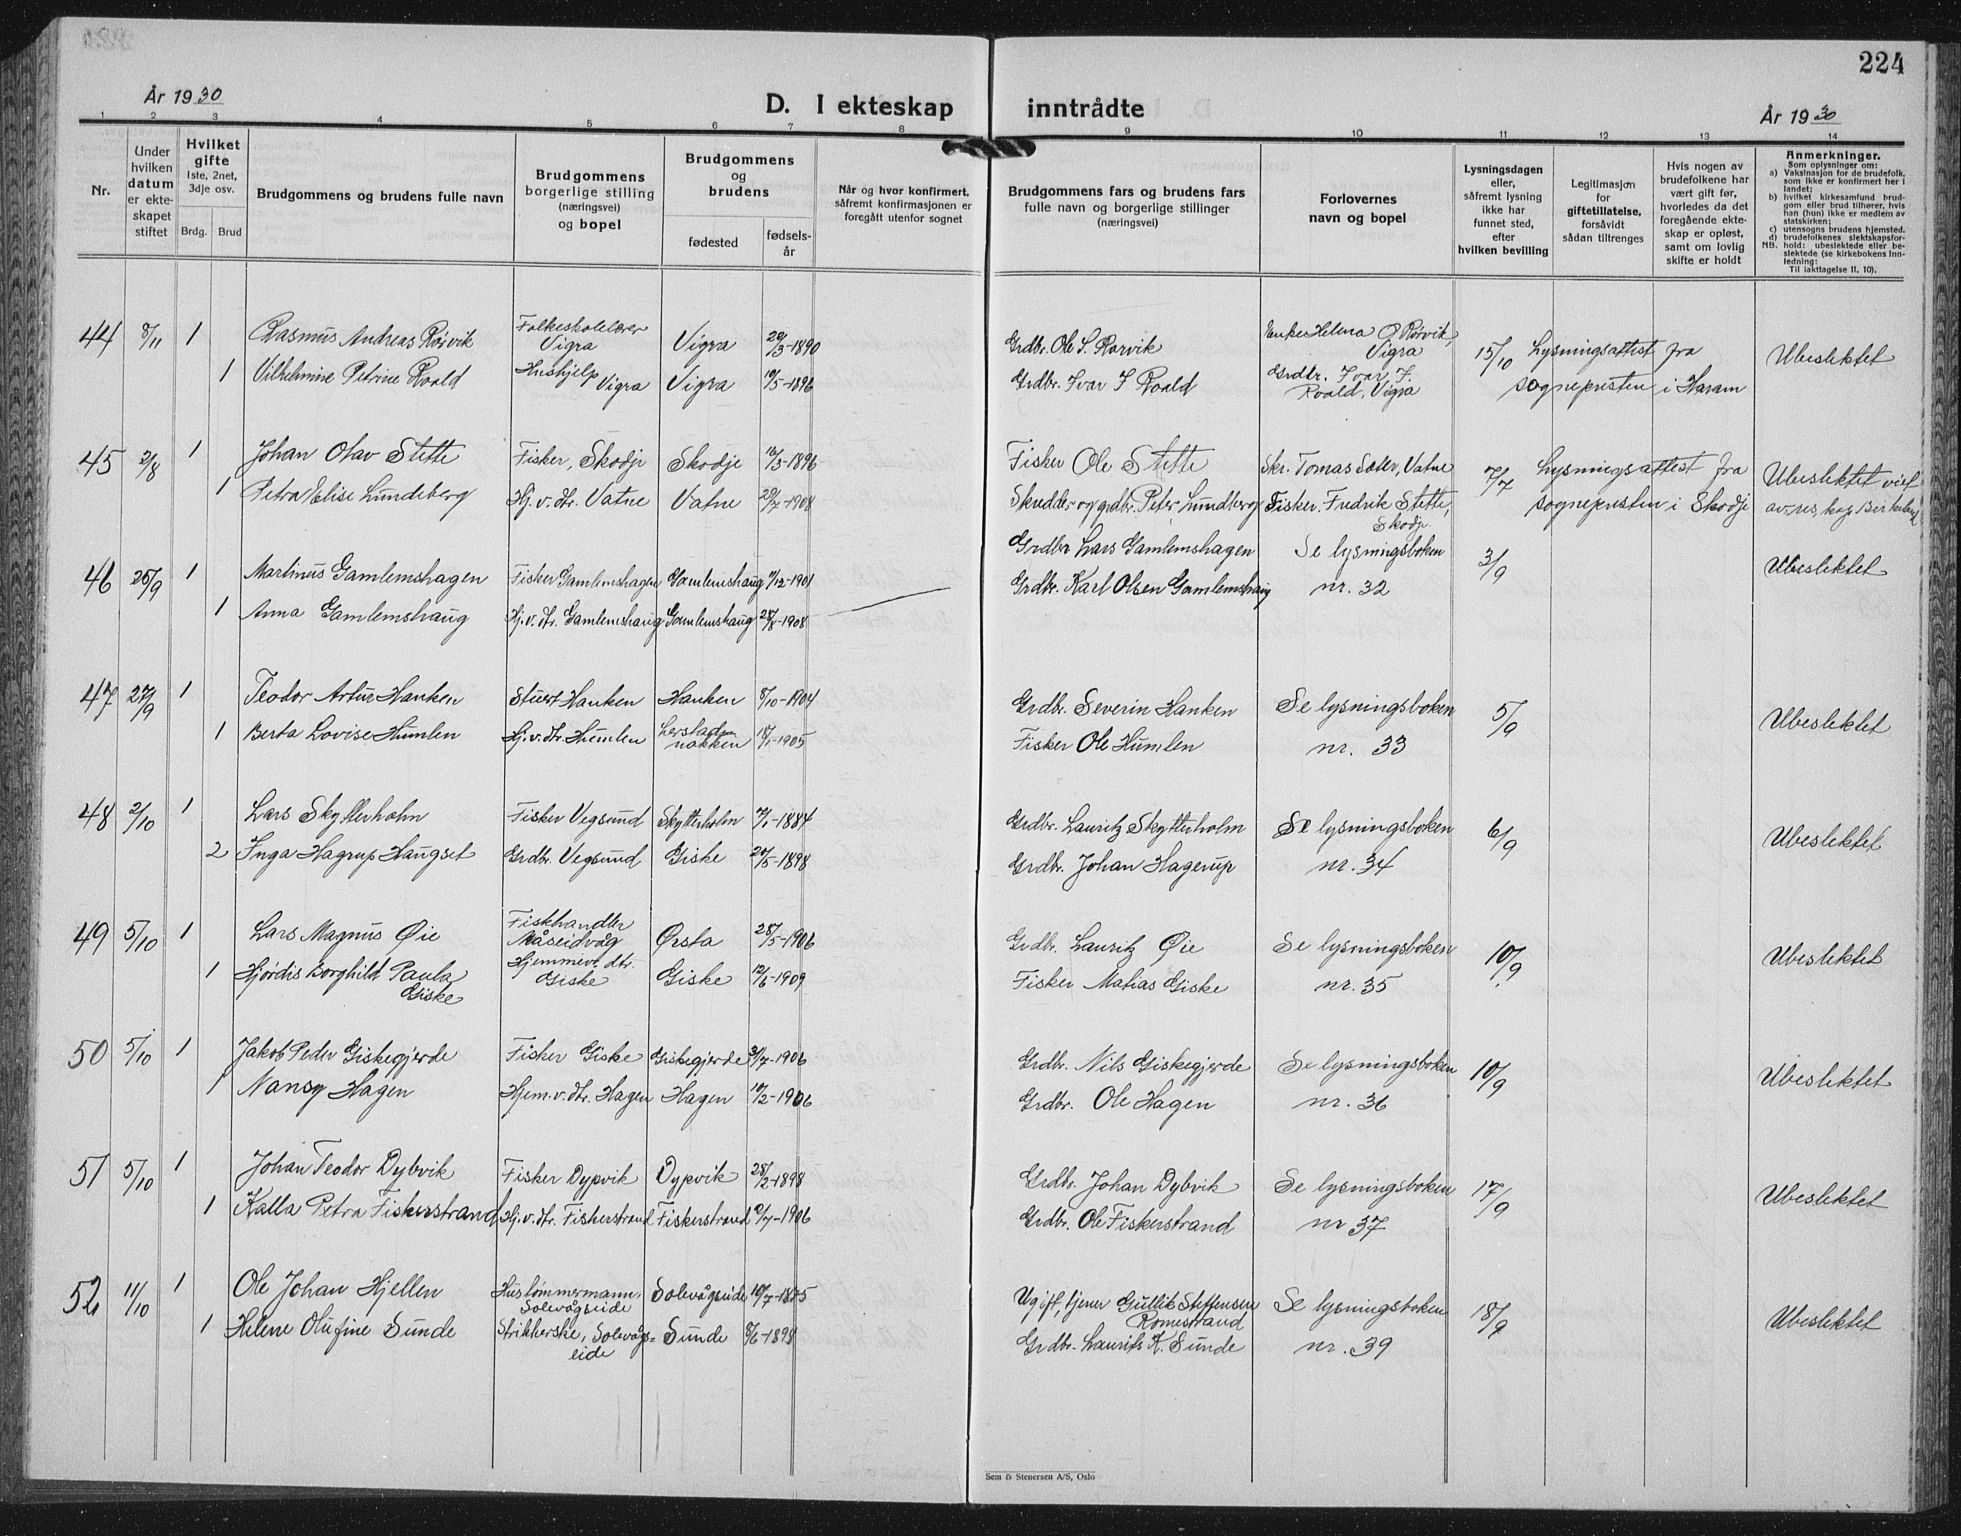 224
År 1930
D. I ekteskap inntrådte
År 1930
1 2 3 4 5 6 7 8 9 10 11 12 13 14
Nr.
Under hvilken datum er ekteskapet stiftet
Hvilket gifte
1ste, 2net, 3dje osv.
Brdg. Brud
Brudgommens og brudens fulle navn
Brudgommens borgerlige stilling (næringsvei) og bopel
Brudgommens og brudens
fødested
fødselsår
Når og hvor konfirmert, såfremt konfirmasjonen er foregått utenfor sognet
Brudgommens fars og brudens fars fulle navn og borgerlige stillinger (næringsvei)
Forlovernes navn og bopel
Lysningsdagen eller, såfremt lysning ikke har funnet sted, efter hvilken bevilling
Legitimasjon for giftetillatelse, forsåvidt sådan tiltrenges
Hvis nogen av brudefolkene har vært gift før, hvorledes da det foregående ekteskap er opløst, samt om lovlig skifte er holdt
Anmerkninger.
Som oplysninger om:
a) Vaksinasjon for de brudefolk, som ikke er konfirmert her i landet;
b) hvilket kirkesamfund brudgom eller brud tilhører, hvis han (hun) ikke er medlem av statskirken;
c) utensogns brudens hjemsted.
d) brudefolkenes slektskapsforhold: ubeslektede eller beslektede (se kirkebokens innledning:
NB. Til iakttagelse II, 10).
44 8/11 1 Rasmus Andreas Rørvik Folkeskolelærer Vigra Vigra 20/3-1890 Grdbr. Ole S. Rørvik Enke Helena O Rørvik, Vigra 15/10 Lysningsattest fra Ubeslektet
1 Vilhelmine Petrine Roald Hushjelp Vigra Vigra 19/5-1896 Grdbr. Ivar I Roald Grdbr. Ivar I. Roald, Vigra sognepresten i Haram
45 2/8 1 Johan Olav Stette Fisker, Skodje Skodje 16/3-1896 Fisker Ole Stette Skr. Tomas Sæter, Vatne 7/7 Lysningsattest fra Ubeslektet viet
1 Petra Elise Lundeberg Hj.v.dtr. Vatne Vatne 29/7-1908 Skredder og grdbr. Peter Lundeberg Fisker. Fredrik Stette, Skodje sognepresten i Skodje av res. kap Birkeland
46 25/9 1 Martinus Gamlemshagen Fisker Gamlemshagen Gamlemshaug 11/12-1901 Grdbr Lars Gamlemshagen Se lysningsboken 3/9 Ubeslektet
1 Anna Gamlemshaug Hj.v.dtr. Gamlemshaug Gamlemshaug 28/8-1908 Grdbr. Karl Olsen Gamlemshaug nr. 32
47 27/9 1 Teodor Artur Hanken Stuert Hanken Hanken 8/10-1904 Grdbr. Severin Hanken Se lysningsboken 5/9 Ubeslektet
1 Berta Lovise Humlen Hj.v.dtr. Humlen Lerstadnakken 18/1-1905 Fisker Ole Humlen nr. 33
48 2/10 1 Lars Skytterholm Fisker Vegsund Skytterholm 7/1-1884 Grdbr. Lauritz Skytterholm Se lysningsboken 6/9 Ubeslektet
2 Inga Hagrup Haugset Grdbr. Vegsund Giske 20/5-1898 Grdbr. Johan Hagerup nr. 34
49 5/10 1 Lars Magnus Øie Fiskhandler Måseidvåg Ørsta 28/5-1906 Grdbr. Lauritz Øie Se lysningsboken 10/9 Ubeslektet
1 Hjørdis Borghild Paula Giske Hjemmev. dtr. Giske Giske 12/6-1909 Fisker Matias Giske nr. 35
50 5/10 1 Jakob Peder Giskegjerde Fisker Giske Giskegjerde 31/7-1906 Grdbr. Nils Giskegjerde Se lysningsboken 10/9 Ubeslektet
1 Nansy Hagen Hjem.v.dtr. Hagen Hagen 10/2-1906 Grdbr. Ole Hagen nr. 36
51 5/10 1 Johan Teodor Dybvik Fisker Dypvik Dypvik 28/2-1898 Grdbr. Johan Dybvik Se lysningsboken 17/9 Ubeslektet
1 Kalla Petra Fiskerstrand Hj.v.dtr. Fiskerstrand Fiskerstrand Grdbr. Ole Fiskerstrand nr 37
52 11/10 1 Ole Johan Hjellen Hustømmermann, Solevågseide Solevågseide Ugift, tjener Gullik Steffensen Romestrand Se lysningsboken 18/9 Ubeslektet
1 Helene Olufine Sunde Strikkerske, Solevågseide Sunde 8/6-1898 Grdbr. Laurits K. Sunde nr. 39
Sem & Stenersen A/S, Oslo